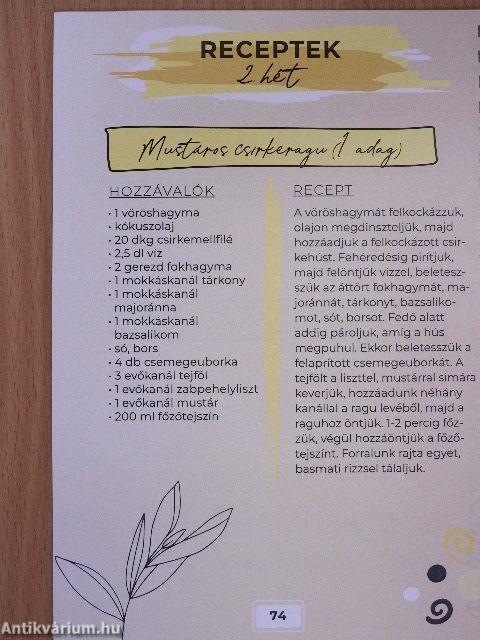 RECEPTEK
2. hét
Mustáros csirkeragu (1 adag)
HOZZÁVALÓK
• 1 vöröshagyma
• kókuszolaj
• 20 dkg csirkemellfilé
• 2,5 dl víz
• 2 gerezd fokhagyma
• 1 mokkáskanál tárkony
• 1 mokkáskanál
majoránna
• 1 mokkáskanál
bazsalikom
• só, bors
• 4 db csemegeuborka
• 3 evőkanál tejföl
• 1 evőkanál zabpehelyliszt
• 1 evőkanál mustár
• 200 ml főzőtejszín
RECEPT
A vöröshagymát felkockázzuk,
olajon megdinszteljük, majd
hozzáadjuk a felkockázott csir-
kehúst. Fehéredésig pirítjuk,
majd felöntjük vízzel, beletesz-
szük az áttört fokhagymát, ma-
joránnát, tárkonyt, bazsaliko-
mot, sót, borsot. Fedő alatt
addig pároljuk, amíg a hús
megpuhul. Ekkor beletesszük a
felaprított csemegeuborkát. A
tejfölt a liszttel, mustárral simára
keverjük, hozzáadunk néhány
kanállal a ragu levéből, majd a
raguhoz öntjük. 1-2 percig főz-
zük, végül hozzáöntjük a főző-
tejszínt. Forralunk rajta egyet,
basmati rizzsel tálaljuk.
74
Antikvárium.hu